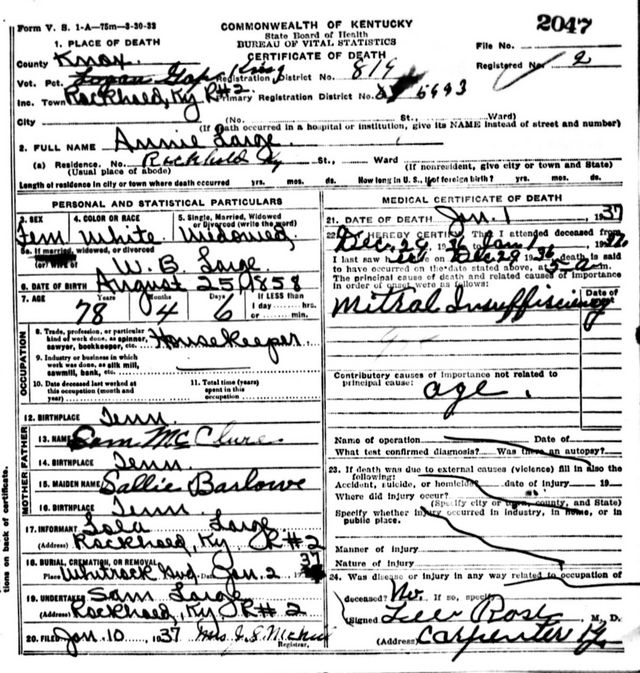 Form V. S. 1-A—75m—3-30-33
COMMONWEALTH OF KENTUCKY
State Board of Health
BUREAU OF VITAL STATISTICS
CERTIFICATE OF DEATH
2047
File No.
Registered No. 2
1. PLACE OF DEATH
County Knox
Vot. Pct. Logan Gap Registration District No. 819
Inc. Town Rockhoed, Ky R#2 Primary Registration District No. 6993
City (No. St., Ward)
(If death occurred in a hospital or institution, give its NAME instead of street and number)
2. FULL NAME Annie Large
(a) Residence. No. Rockhold Ky St., Ward
(Usual place of abode) (If nonresident, give city or town and State)
Length of residence in city or town where death occurred yrs. mos. ds. How long in U. S., if of foreign birth? yrs. mos. ds.
PERSONAL AND STATISTICAL PARTICULARS
3. SEX 4. COLOR OR RACE 5. Single, Married, Widowed or Divorced (write the word)
Fem White Widowed
5a. If married, widowed, or divorced
(or) WIFE of W. B. Large
6. DATE OF BIRTH August 25, 1858
7. AGE Years Months Days If LESS than
78 4 6 1 day hrs.
or min.
OCCUPATION
8. Trade, profession, or particular kind of work done, as spinner, sawyer, bookkeeper, etc. Housekeeper
9. Industry or business in which work was done, as silk mill, sawmill, bank, etc.
10. Date deceased last worked at this occupation (month and year)
11. Total time (years) spent in this occupation
12. BIRTHPLACE Tenn.
FATHER
13. NAME Sam McClure
14. BIRTHPLACE Tenn.
MOTHER
15. MAIDEN NAME Sallie Barlowe
16. BIRTHPLACE Tenn
17. INFORMANT Lola Large
(Address) Rockhoed, Ky R#2
18. BURIAL, CREMATION, OR REMOVAL
Place Date Jan. 2 37
19. UNDERTAKER Sam Large
(Address) Rockhoed, Ky R#2
20. FILED Jan 10, 1937 Mrs. J. S.
Registrar.
MEDICAL CERTIFICATE OF DEATH
21. DATE OF DEATH Jan. 1 1937
22. I HEREBY CERTIFY, That I attended deceased from
Dec. 29, 1936 to Jan 1 1937
I last saw her Dec 29 1936 death is said
to have occurred on the date stated above, at 5 a m.
The principal cause of death and related causes of importance
in order of onset were as follows:
Date of
Mitral Insufficiency
Contributory causes of importance not related to
principal cause:
age.
Name of operation Date of
What test confirmed diagnosis? Was there an autopsy?
23. If death was due to external causes (violence) fill in also the
following:
Accident, suicide, or homicide date of injury 19
Where did injury occur?
(Specify city or town, county, and State)
Specify whether injury occurred in industry, in home, or in
public place.
Manner of injury
Nature of injury
24. Was disease or injury in any way related to occupation of
deceased? No. If so, specify
(Signed) Rose, M. D.
(Address) Carpenter Ky.
tions on back of certificate.